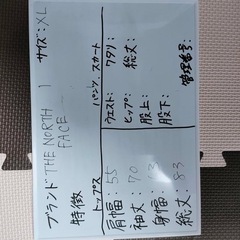 ブランド THE NORTH FACE サイズ:XL
特徴
トップス
肩幅:55
袖丈:70
身幅:
総丈:83
パンツ、スカート
ウエスト: ワタリ:
ヒップ: 総丈:
股上:
股下:
管理番号: